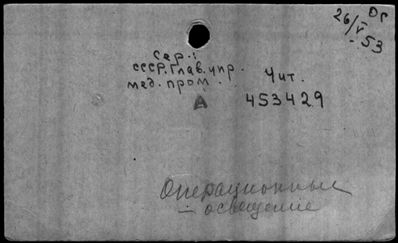 Ог
26/V-53
Сер.:
СССР. Глав. упр.
мед. пром.
Чит.
А
453429
Операционные
– освещение